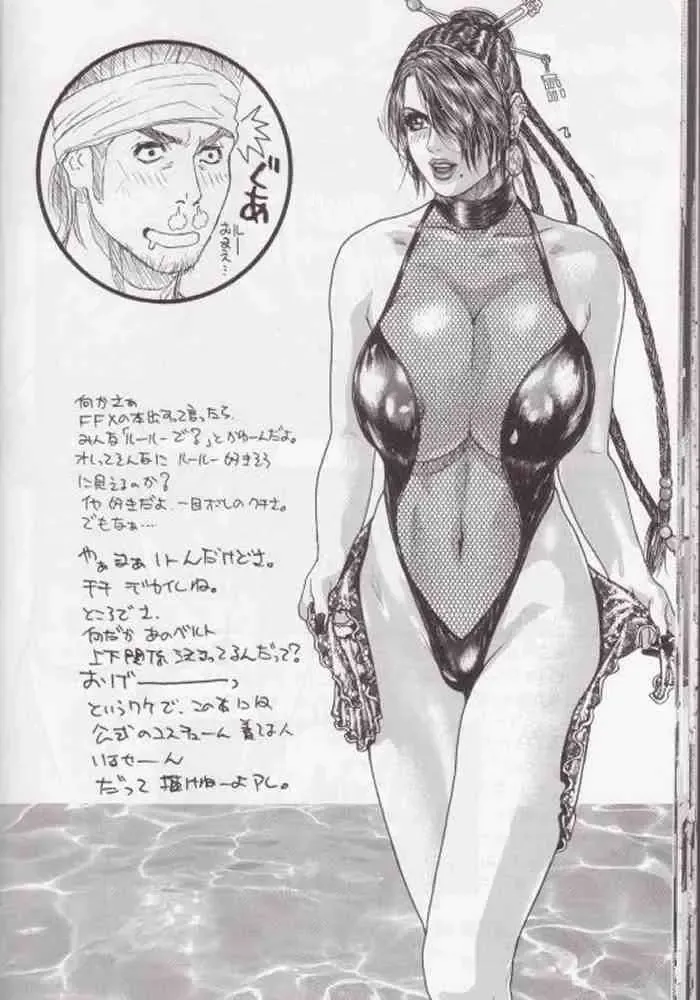 ぐあぁ
ルールー
おまえ…
何かさぁ
FFXの本出すって言ったら
みんな「ルールーで?」とかゆーんだよ。
オレってそんなに ルールー好きそう
に見えるのか?
イヤ 好きだよ 一目ボレのクチさ。
でもなぁ…
やぁ まぁ んだけどさ。
チチ デカイしね。
ところでさ、
何だか あのベルト
上下関係 決まってるんだって?
おげーーっ
というワケで、この本にね
公式のコスチューム 着てる人
いませーん
だって 描けねーよ アレ。